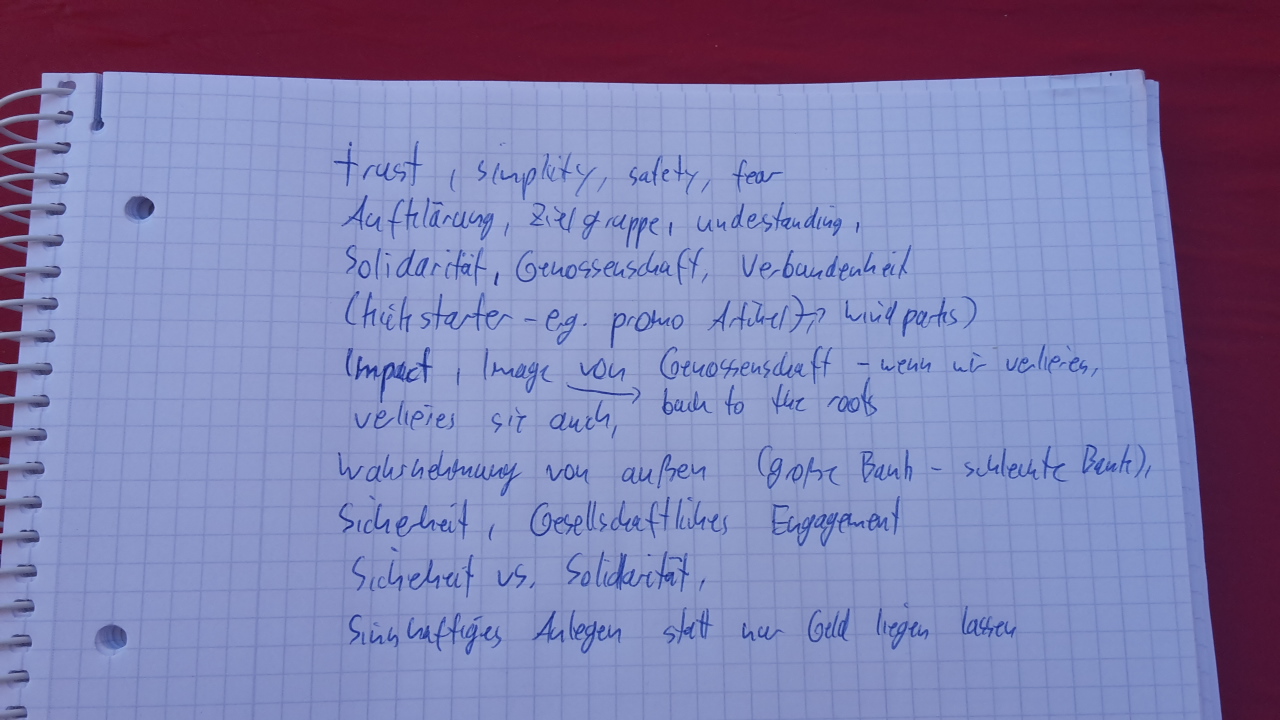 trust, simplity, safety, fear
Aufklärung, Zielgruppe, undestanding,
Solidarität, Genossenschaft, Verbundenheit
(Kickstarter - e.g. promo Artikel) -> Windparks)
Impact, Image von Genossenschaft - wenn wir verlieres,
verlieres sie auch, -> back to the roots
Wahrnehmung von außen (große Bank - schlechte Bank),
Sicherheit, Gesellschaftliches Engagement
Sicheheit vs. Solidarität,
Sinnhaftiges Anlegen statt nur Geld liegen lassen